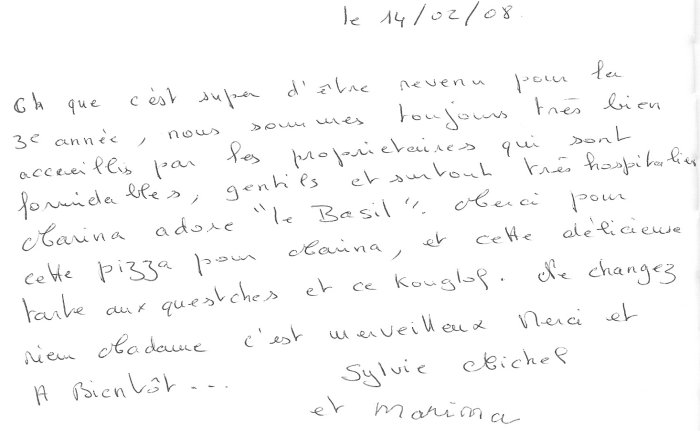 le 14/02/08.
Oh que c'est super d'être revenu pour la
3e année, nous sommes toujours très bien
accueillis par les propriétaires qui sont
formidables, gentils et surtout très hospitaliers
Marina adore "le Basil". Merci pour
cette pizza pour Marina, et cette délicieuse
tarte aux questches et ce Kouglof. Ne changez
rien Madame c'est merveilleux Merci et
A Bientôt...
Sylvie Michel
et Marina